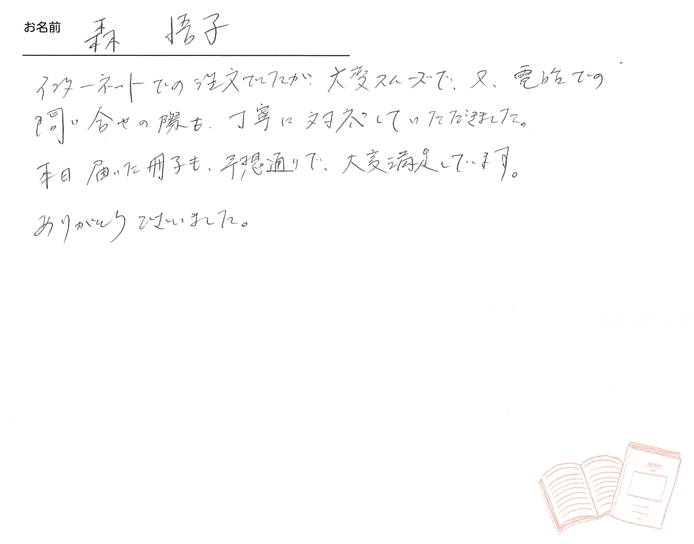 お名前 森 悟子
インターネットでの注文でしたが、大変スムーズで、又、電話での
問い合せの際も、丁寧に対応していただきました。
本日届いた冊子も、予想通りで、大変満足しています。
ありがとうございました。